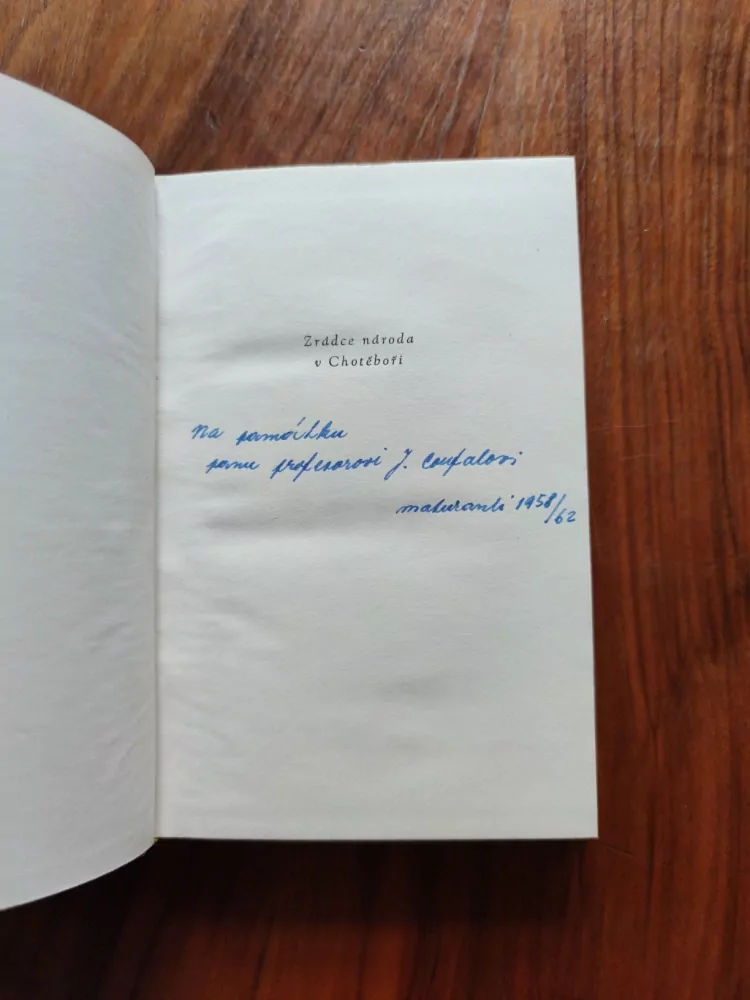 Zrádce národa
v Chotěboři
Na památku
panu profesorovi J. Coufalovi
maturanti 1958/62